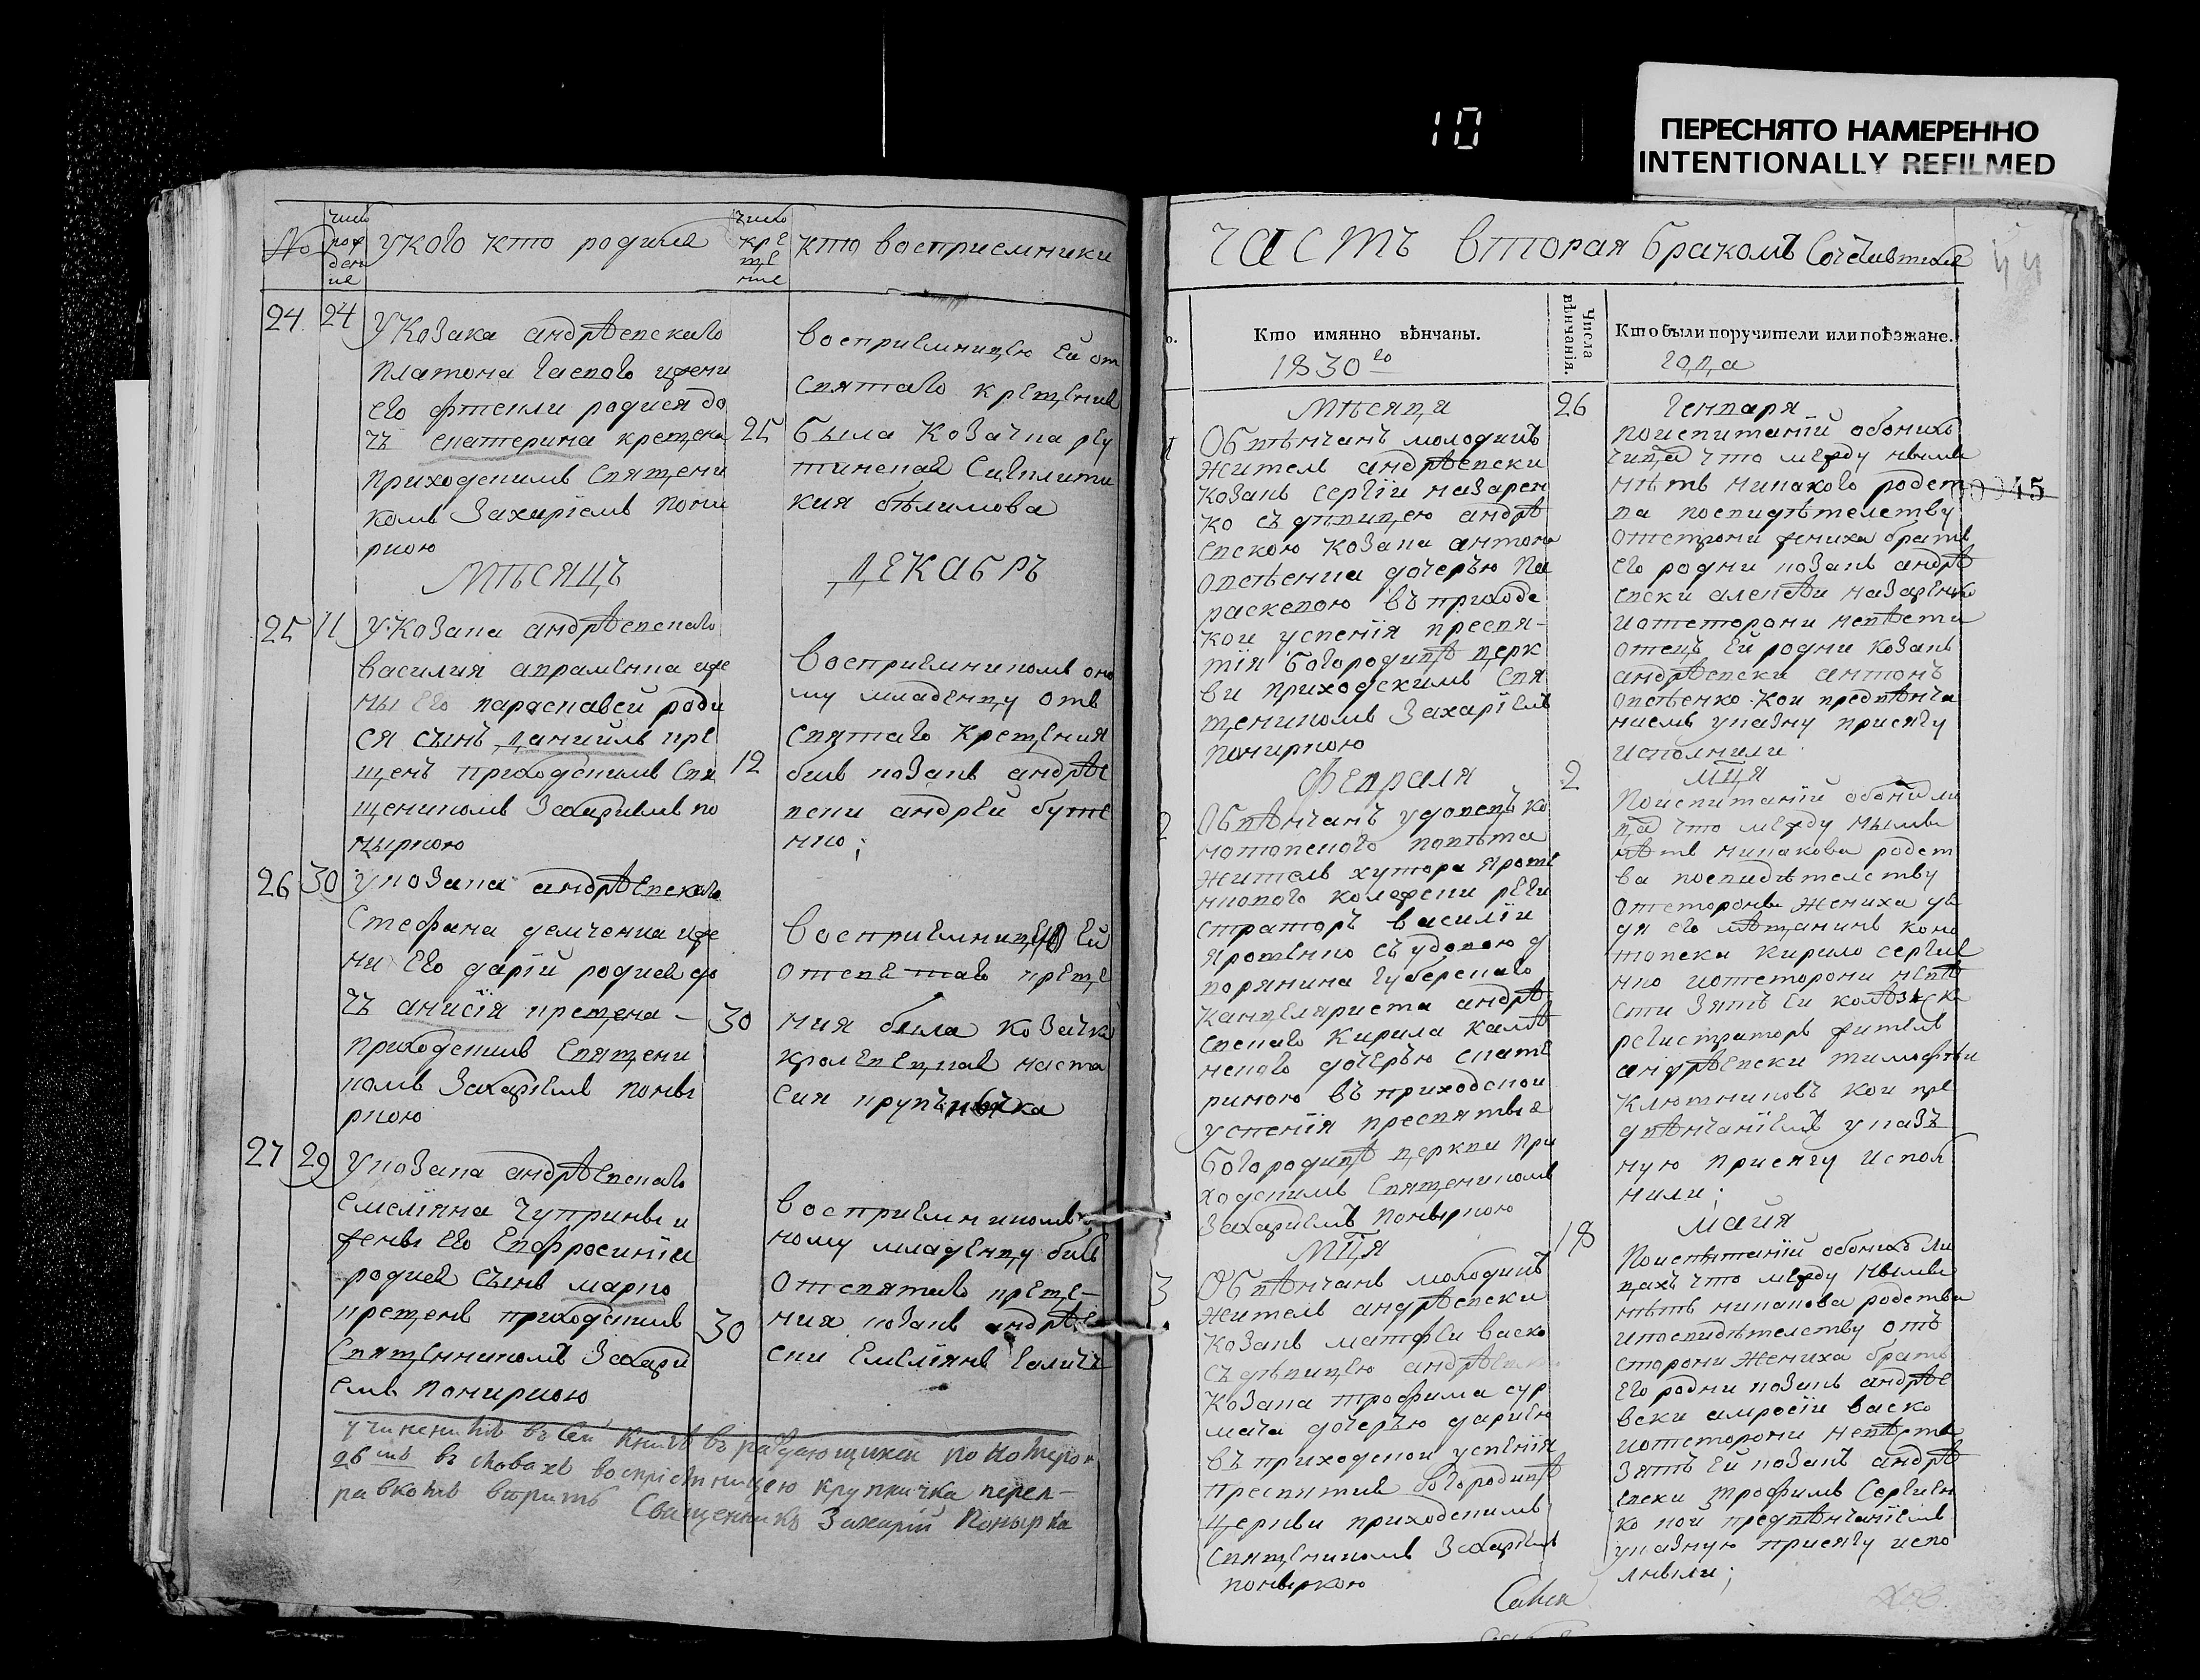 10
ПЕРЕСНЯТО НАМЕРЕННО
INTENTIONALLY REFILMED
№
число
рож
дени
ие
укого кто родился
число
кре
ще
ние
кто восприемники
24
24
У козака андрѣевскаго
платона ижени
его родися до
чъ екатерина крещена
приходскимъ священи
комъ Захаріемъ пони
ркою
25
восприемницею ей от
святаго крещения
была козачка
кия бѣлимова
Мѣсяцъ
ДЕКАБРЬ
25
11
У козака андрѣевскаго
василия авраменка иже
ны его параскавеи роди
ся сынъ даниилъ кре
щенъ приходскимъ свя
щеникомъ Захариемъ по
ныркою
12
восприемникомъ оно
му младенцу отъ
святаго крещения
билъ козакъ андрѣе
вски андрей буте
нко;
26
30
у козака андрѣевскаго
Стефана демченка иже
ни его дарїи родися до
чъ анисїя крещена
приходскимъ священи
комъ Захарїемъ поны
ркою
30
восприемницею ей
отсвя таго креще
ния била козачка
кролевецкая наста
сия
27
29
у козака андрѣевскаго
емелїяна Чуприны и
жены его Евфросинїи
родися сынъ марко
крещенъ приходскимъ
священникомъ Захари
емъ пониркою
30
восприемникомъ о
ному младенцу билъ
отсвятаго креще-
ния козакъ андрѣе
вски емелїянъ галичъ
учиненнıѣ въ сей книгѣ въ раждающихся по номеромъ
26мъ въ словахъ воспрıемницею крупничка переп-
равкомъ вѣрить Священникъ Захарій Понырка
ЧАСТЬ вторая бракомъ Сочетавшихся
44
Кто имянно вѣнчаны.
1830го
Числа
вѣнчанія.
Кто были поручители или поѣзжане.
года
Мѣсяца
26
Генваря
Обвѣнчанъ молодикъ
житель андрѣевски
козакъ сергїи назарен
ко съ дѣвицею андрѣ
евскою козака антона
овсѣенка дочерью па
раскевою въ приходс
кои успенїя пресвя-
тїя богородицѣ церк
ви приходскимъ свя
щеникомъ Захарїемъ
пониркою
поиспитанїи обоихъ
лицъ что между ными
нѣтъ никакого родст
ва посвидѣтелству
отстрони жениха братъ
его родни козакъ андрѣ
евски алексѣи назаренко
иотсторони невѣсти
отецъ ей родни козакъ
андрѣевски антонъ
овсѣенко кои предвѣнча
ниемъ указну присягу
исполнили
00045
февраля
2
мця
2
Обвѣнчанъ удовецъ ко
нотопского повѣта
житель хутора яроше
нкового колежски реги
страторъ василїи
ярошенко съ удовою д
ворянина губерскаго
канцеляриста андрѣ
евскаго кирила калѣ
нского дочерью екате
риною въ приходской
успенїя пресвятыя
богородицѣ церкви при
ходскимъ священикомъ
Захариемъ поныркою
поиспитанїи обоихъ ли
цъ что между ными
нѣтъ никакова родст
ва посвидѣтелству
отсторонъ жениха дя
дя его мѣщанинъ коно
топски кирило сергие
нко иотсторони невѣ
сти зять ей колѣзьски
регистраторъ житель
андрѣевски тимофѣи
клютниковъ кои пре
двѣнчанїемъ указ
ную присягу испол
нили;
мця
18
мая
3
Обвѣнчанъ молодикъ
житель андрѣевски
козакъ матфѣи васко
съ дѣвицею андрѣевск
козака трофима сур
мача дочерью дариею
въ приходской успенїя
пресвятия богородицѣ
церкви приходскимъ
священикомъ Захарїемъ
поныркою
поиспытанїи обоихъ ли
цахъ что между ными
нѣтъ никакова родства
ипосвидѣтелству отъ
сторони жениха братъ
его родни козакъ андрѣе
вски амросїи васко
иотсторони невѣсти
зять ей козакъ андрѣ
евски трофимъ сергиен
ко кои предвѣнчанїемъ
указную присягу испо
лнили;